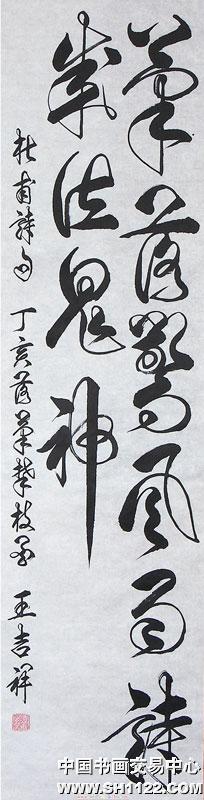 筆落驚風雨詩
成泣鬼神
杜甫詩句 丁亥落筆攀枝花 王吉祥
中国书画交易中心
www.SH1122.com